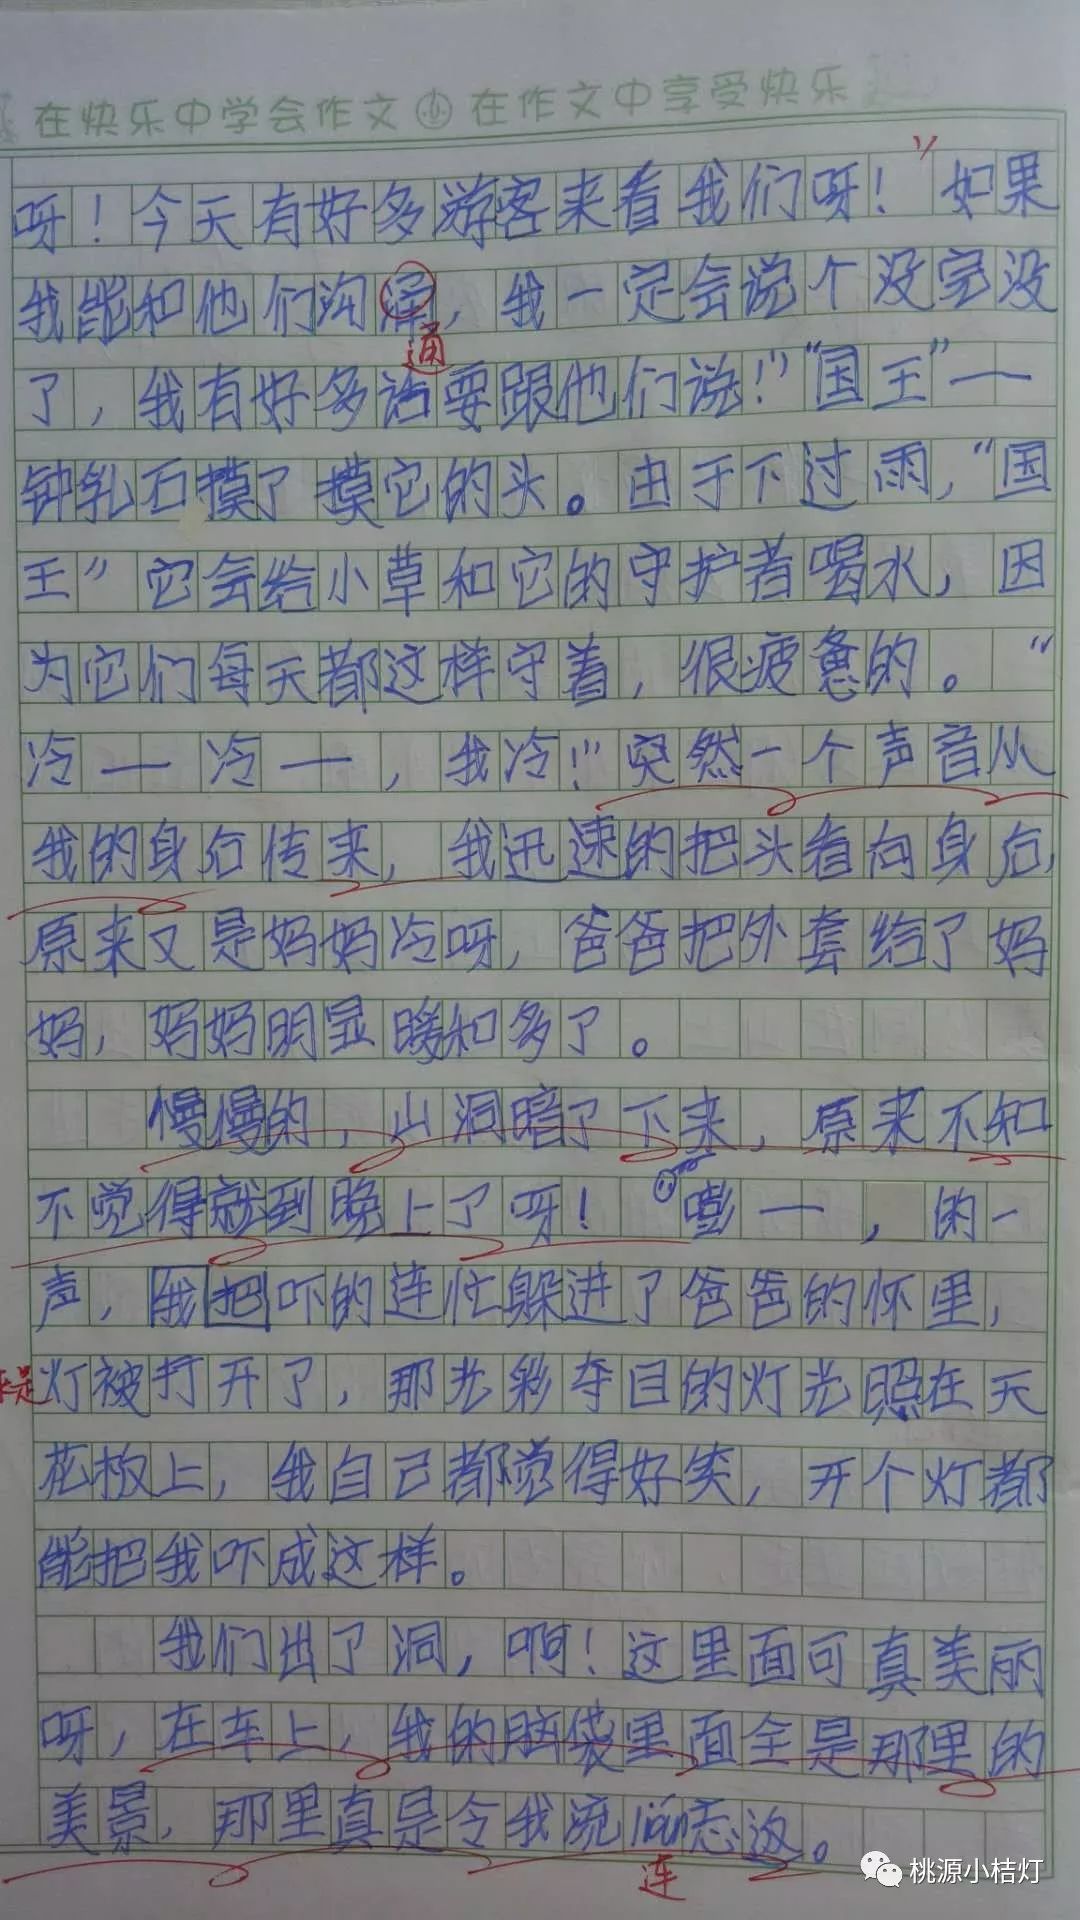 在快乐中学会作文 在作文中享受快乐
呀！今天有好多游客来看我们呀！”如果
我能和他们沟，我一定会说个没完没
通
了，我有好多话要跟他们说！”“国王”——
钟乳石摸了摸它的头。由于下过雨，“国
王”它会给小草和它的守护者喝水，因
为它们每天都这样守着，很疲惫的。“
冷——冷——，我冷！”突然一个声音从
我的身后传来，我迅速的把头看向身后，
原来又是妈妈冷呀，爸爸把外套给了妈
妈，妈妈明显暖和多了。
慢慢的，山洞暗了下来，原来不知
不觉得就到晚上了呀！嘭——，的一
声，我把吓的连忙躲进了爸爸的怀里，
是灯被打开了，那光彩夺目的灯光照在天
花板上，我自己都觉得好笑，开个灯都
能把我吓成这样。
我们出了洞，啊！这里面可真美丽
呀，在车上，我的脑袋里面全是那里的
美景，那里真是令我流lián忘返。
连
桃源小桔灯